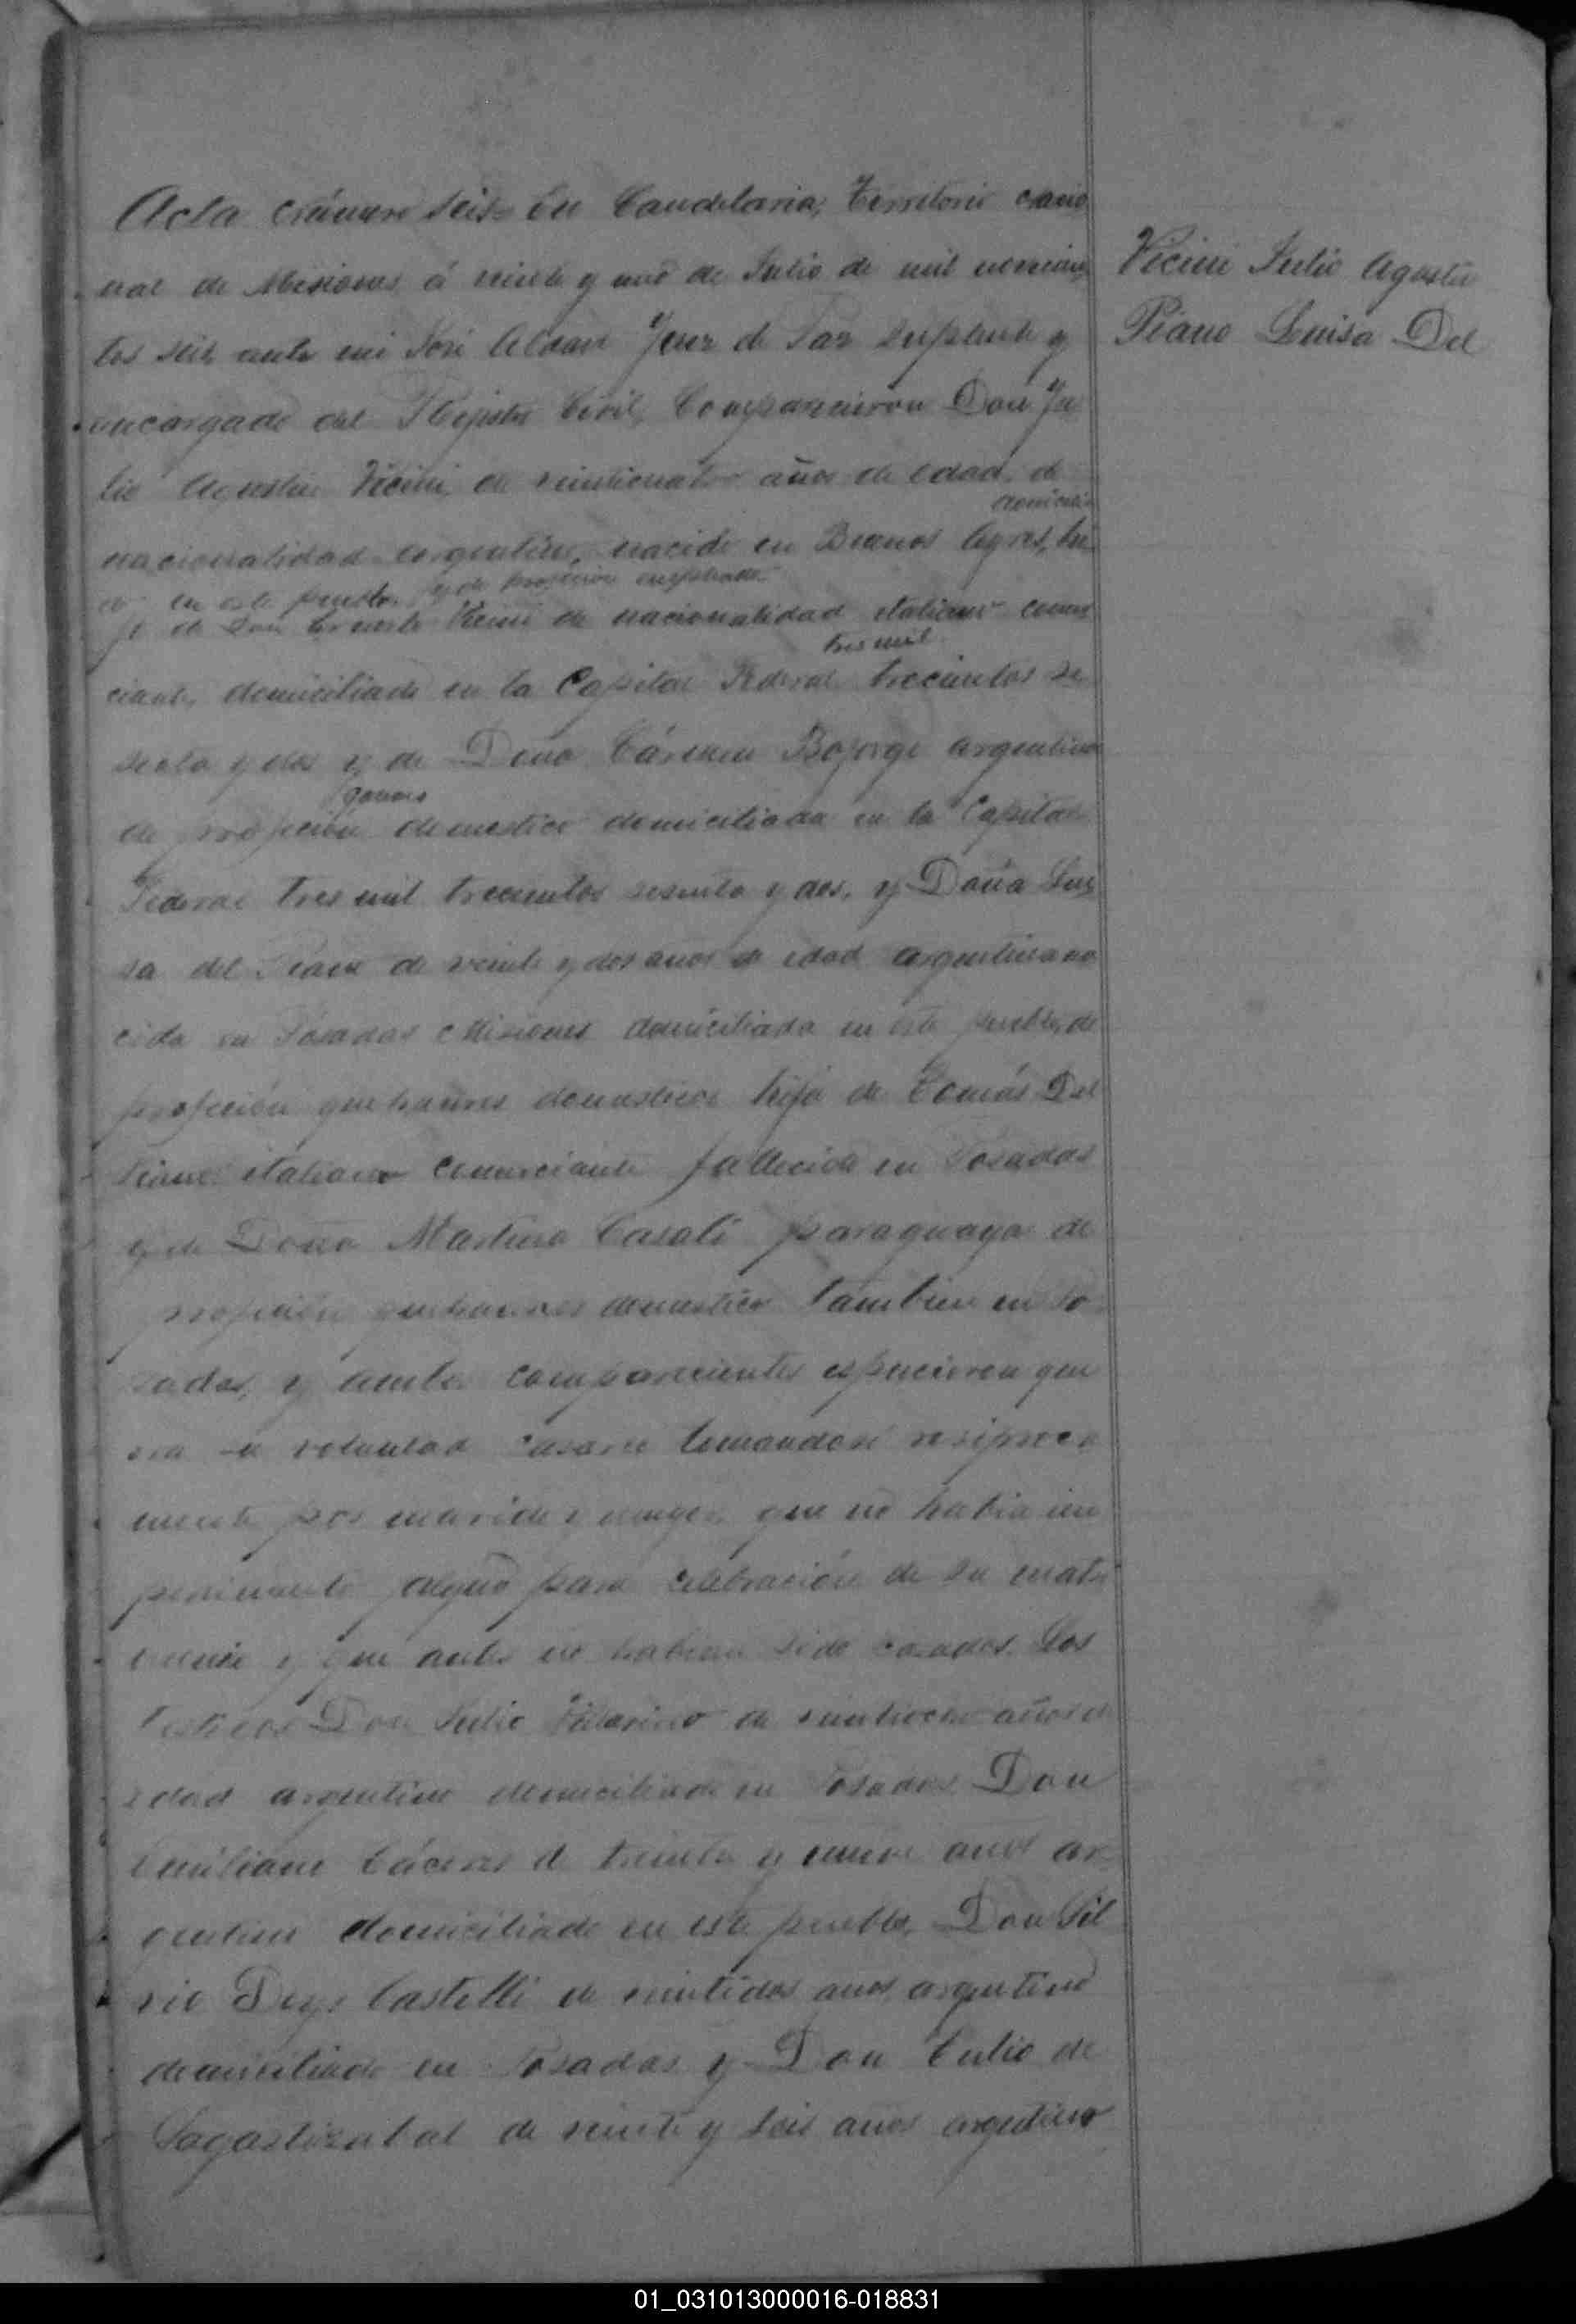 Acta número seis En Candelaria, Territorio nacio
nal de Misiones á veinte y uno de Julio de mil novecien
tos seis ante mi José Juez de Paz Suplente y
encargado del Rejistro Civil, Comparecieron Don Ju
lio Agustin Vicini, de veinticuatro años de edad, de
nacionalidad argentino, nacido en Buenos Ayres, domicilia
do en este pueblo y de profecion empleado hi
jo de Don Ernesto Vicini de nacionalidad italiano comer
ciante, domiciliado en la Capital Federal tres mil trecientos se
senta y dos y de Doña Cármen Bojorge argentina
de profeción domestico domiciliada en la Capital
Federal tres mil trecientos sesenta y dos, y Doña Lui
sa del Piano de veinte y dos anos de edad argentina na
cida en Posadas Misiones domiciliada en este pueblo, de
profeción quehaceres domesticos hija de Tomás Del
Piano italiano comerciante fallecido en Posadas
y de Doña Martina Casali paraguaya de
profeción quehaceres domestico tambien en Po
sadas, y ambos comparecientes espucieron que
era su voluntad casarse tomandose resiproca
mente por marido y muger, que no habia im
pedimento alguno para celebración de su matri
monio y que antes no habian sido casados. Los
testigos Don Julio Vilarino de veintiocho años de
edad argentino domiciliado en Posadas Don
Emiliano Cáceres de treinta y nueve anos ar
gentino domiciliado en este pueblo, Don Sil
vio Castelli de veintidos anos, argentino
domiciliado en Posadas y Don Tulio de
Sagastizabal de veinte y seis anos argentino
Vicini Julio Agustin
Piano Luisa Del
01_031013000016-018831